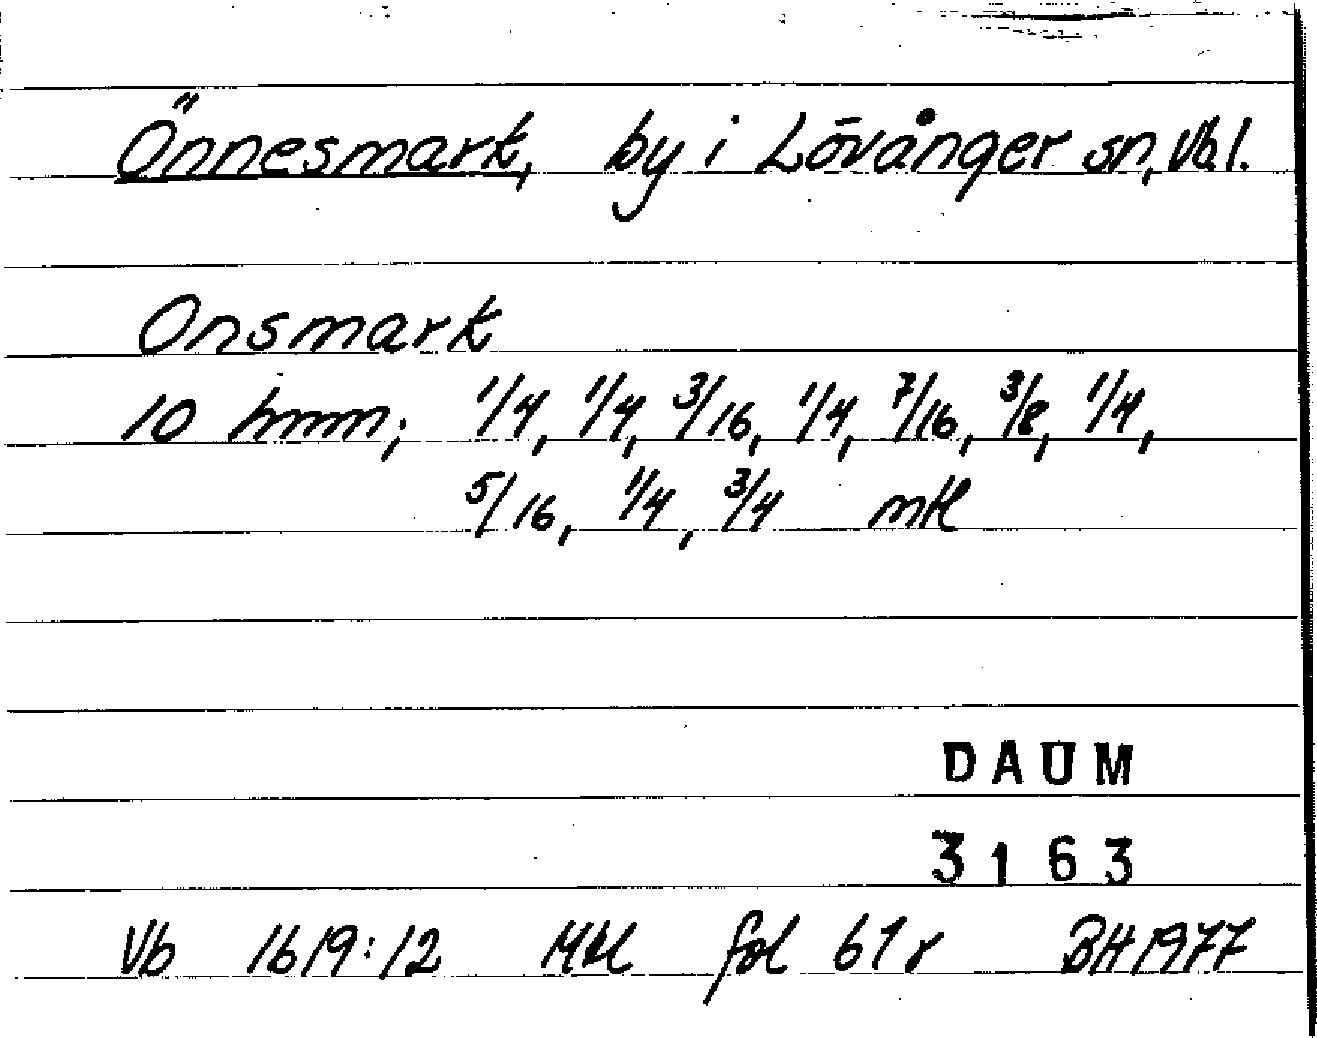 Önnesmark, by i Lövånger sn, Vb l.
Onsmark
10 hmn; 1/4, 1/4, 3/16, 1/4, 7/16, 3/8, 1/4,
5/16, 1/4, 3/4 mtl
DAUM
3163
Vb 1619:12 Mtl fol 61r BH 1977